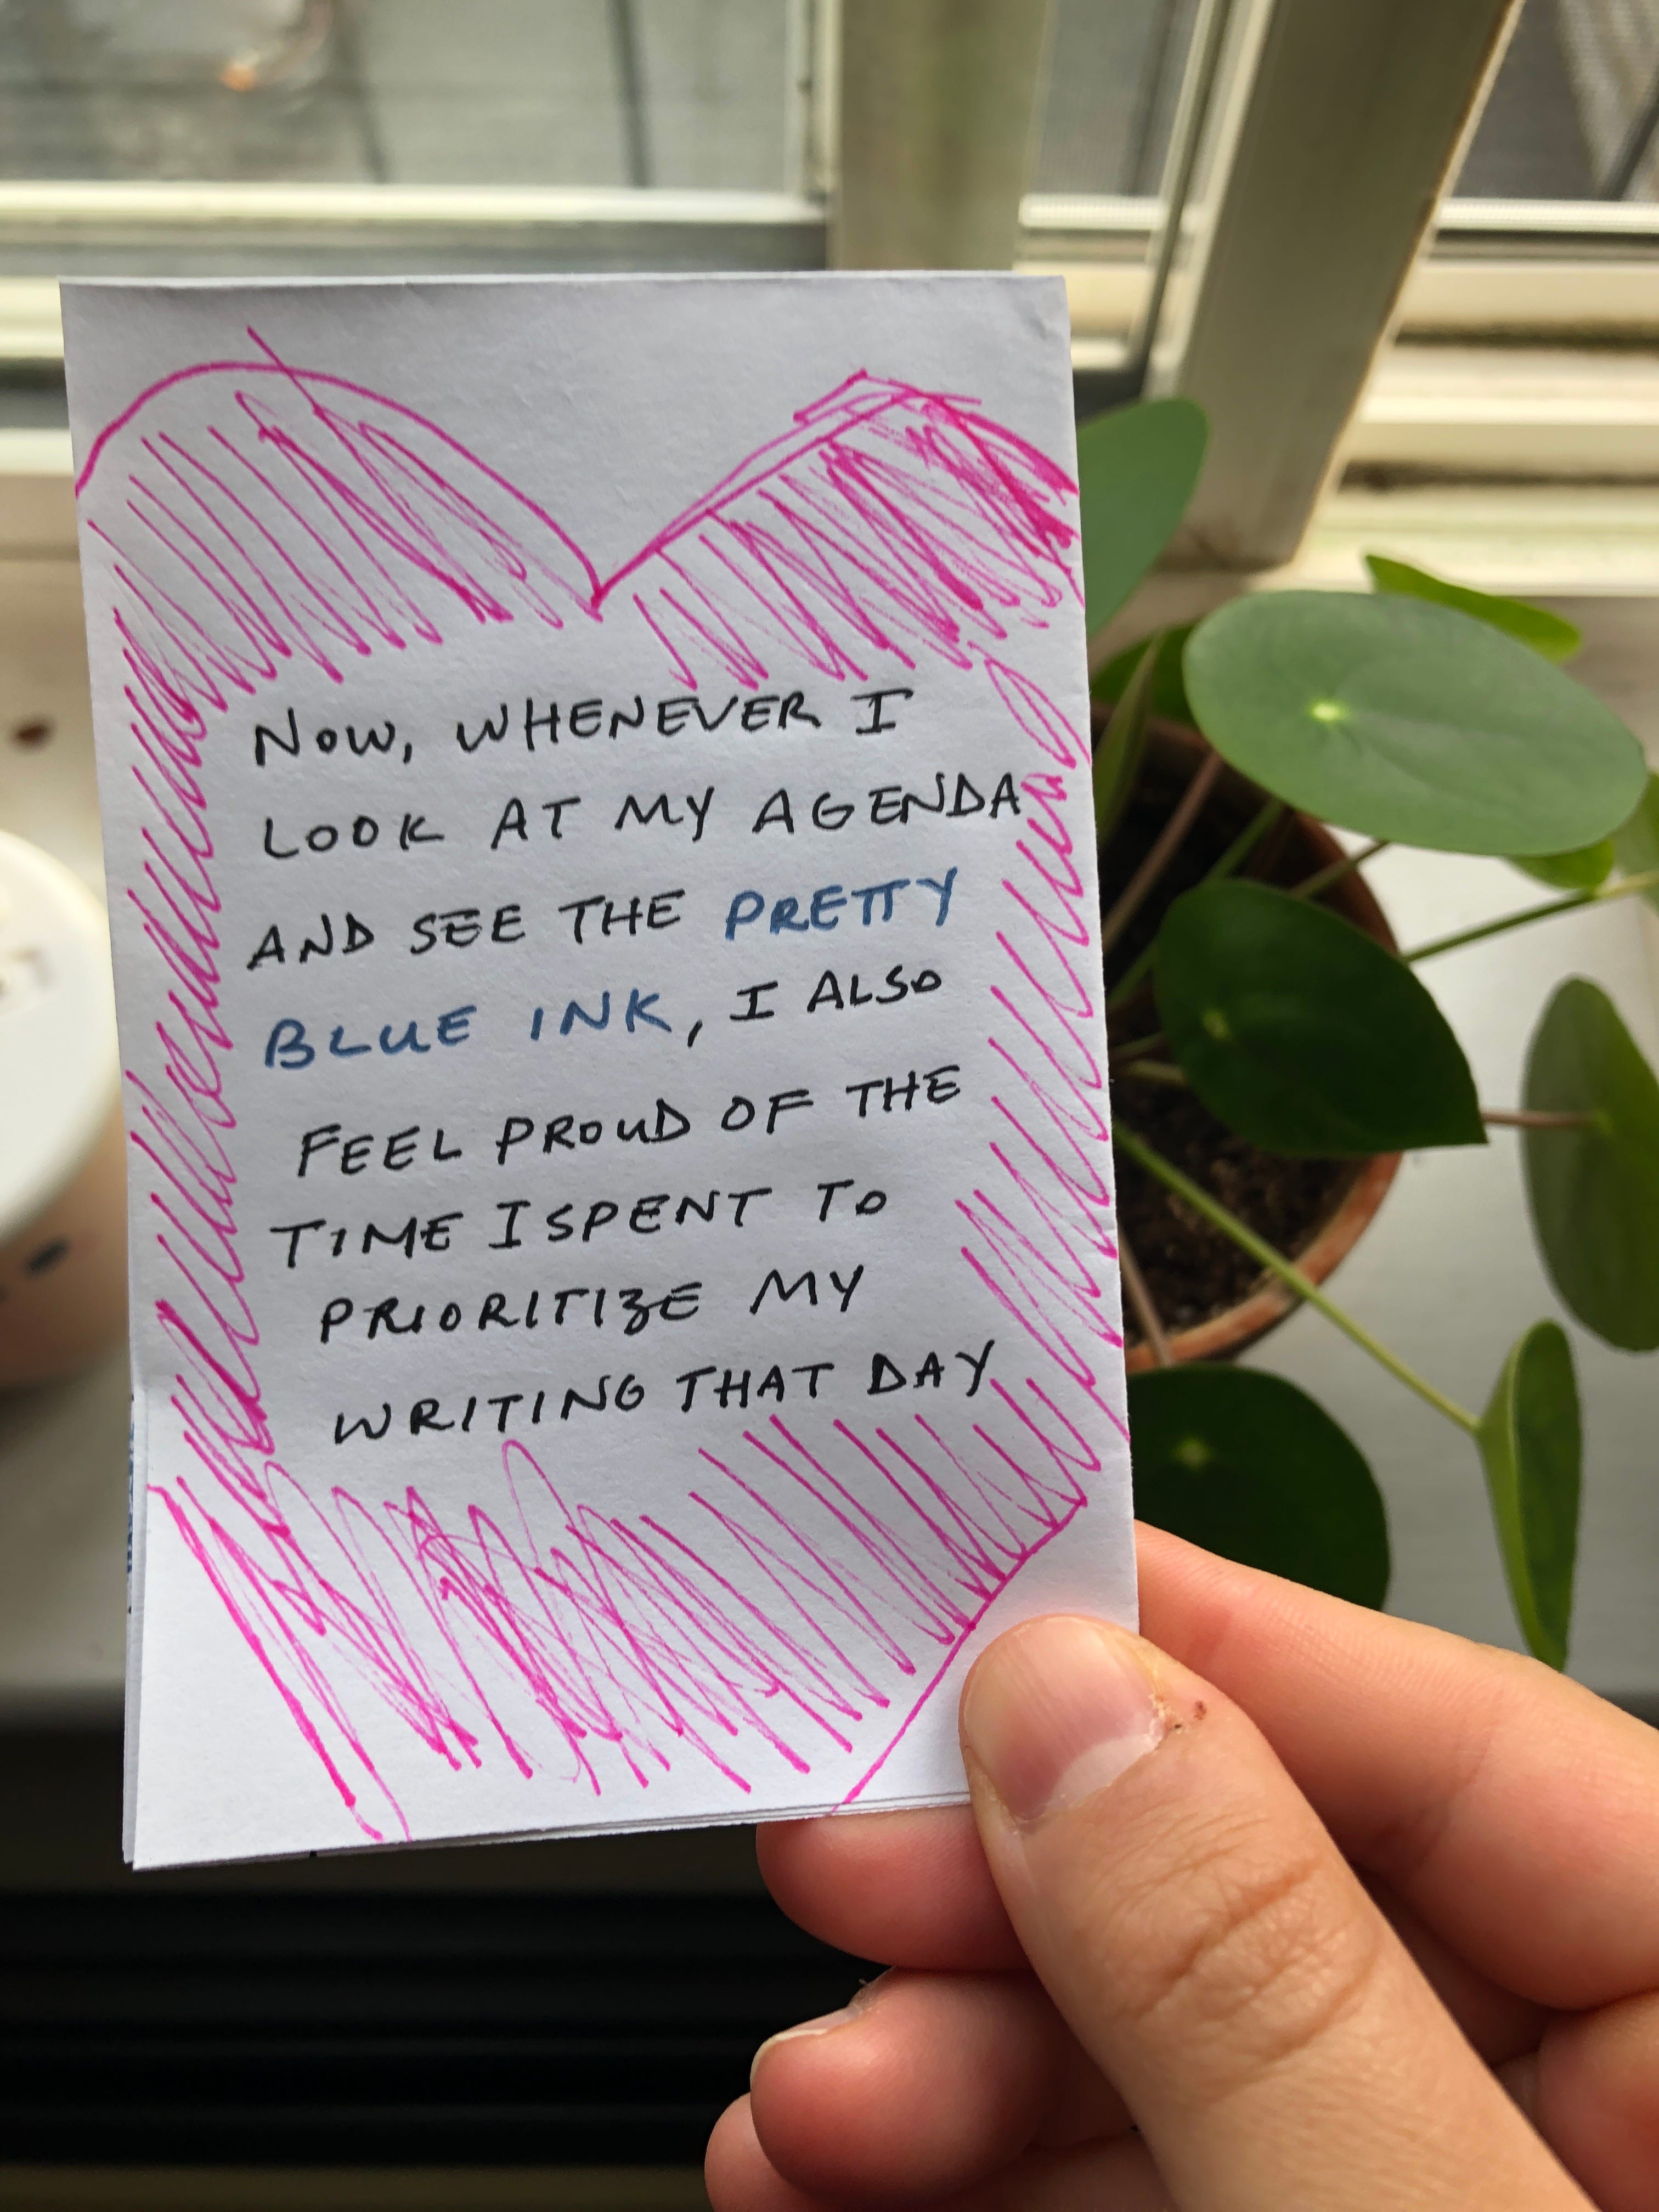 NOW, WHENEVER I
LOOK AT MY AGENDA
AND SEE THE PRETTY
BLUE INK, I ALSO
FEEL PROUD OF THE
TIME I SPENT TO
PRIORITIZE MY
WRITING THAT DAY